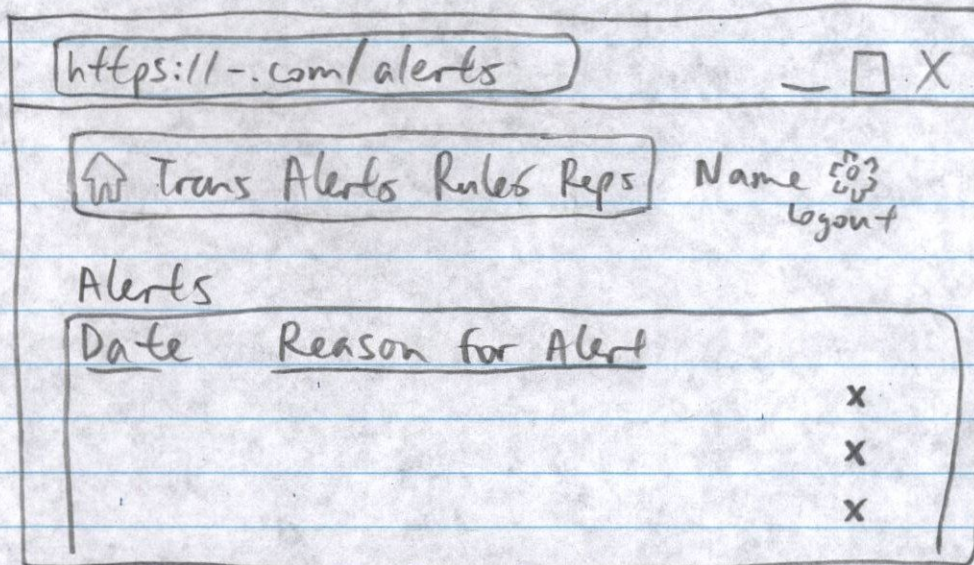 https://-.com/alerts
Trans Alerts Rules Reps Name
Logout
Alerts
Date Reason for Alert
x
x
x